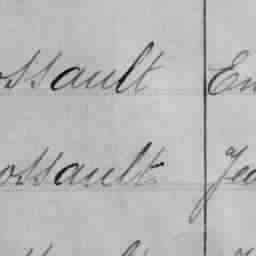 ossault En
ossault Jea